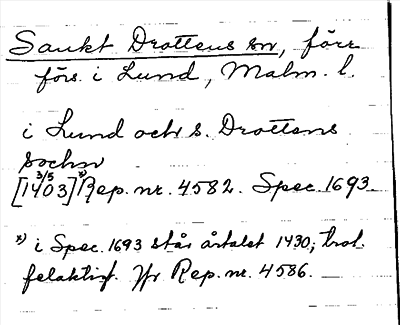 Sankt Drottens sn, förr
förs. i Lund, Malm. l.
i Lund och s. Drottens
sochn
[1403] 3/5 x) Rep. nr. 4582. Spec. 1693.
x) i Spec. 1693 står årtalet 1430; trol.
felaktigt. Jfr Rep. nr. 4586.